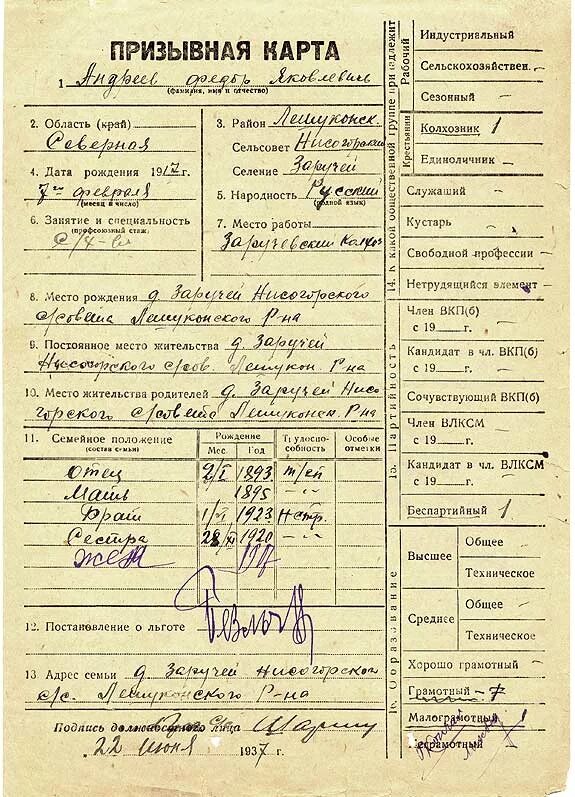 ПРИЗЫВНАЯ КАРТА
1 Андреев Федор Яковлевич
(фамилия, имя и отчество)
2. Область (край)
Северная
3. Район Лешуконск.
Сельсовет Нисогорский
Селение Заручей
4. Дата рождения 1917 г.
7го февраля
(месяц и число)
5. Народность Русский
(родной язык)
6. Занятие и специальность
(профсоюзный стаж)
С/х-во
7. Место работы
Заручевский Колхоз
8. Место рождения д. Заручей Нисогорского
с/совета Лешуконского Р-на
9. Постоянное место жительства д. Заручей
Нисогорского с/сов. Лешукон. Р-на
10. Место жительства родителей д. Заручей Нисо-
горского с/совета Лешуконск. Р-на
11. Семейное положение
(состав семьи)
Рождение
Мес. Год
Трудоспо-
собность
Особые
отметки
Отец 2/I 1893 т/сп
Мать 1895 -"-
Брат 1923 Нетр.
Сестра 1920 -"-
жена
12. Постановление о льготе
Без льгот
13. Адрес семьи д. Заручей Нисогорского
с/с. Лешуконского Р-на
Подпись должностного лица
22 июня 1937 г.
14. К какой общественной группе принадлежит
Рабочий
Индустриальный
Сельскохозяйствен. –
Сезонный –
Крестьянин
Колхозник 1
Единоличник –
Служащий –
Кустарь –
Свободной профессии –
Нетрудящийся элемент –
15. Партийность
Член ВКП(б)
с 19 г. –
Кандидат в чл. ВКП(б)
с 19 г. –
Сочувствующий ВКП(б)
Член ВЛКСМ
с 19 г. –
Кандидат в чл. ВЛКСМ
с 19 г. –
Беспартийный 1
16. Образование
Высшее
Общее
Техническое
Среднее
Общее –
Техническое
Хорошо грамотный –
Грамотный –
Малограмотный 1
Неграмотный